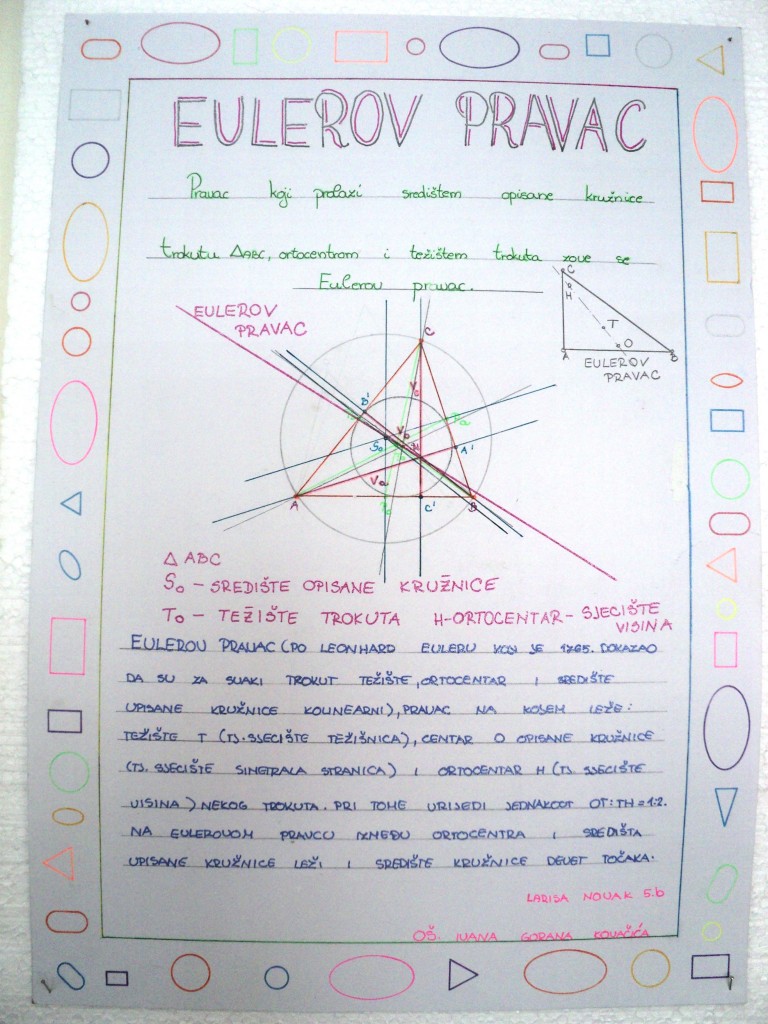 EULEROV PRAVAC
Pravac koji prolazi središtem opisane kružnice
trokutu ΔABC, ortocentrom i težištem trokuta zove se
Eulerov pravac.
C
H
T
O
A
B
EULEROV
PRAVAC
EULEROV
PRAVAC
C
B'
Vc
Vb
So
H
A'
Va
A
C'
B
Δ ABC
So - SREDIŠTE OPISANE KRUŽNICE
To - TEŽIŠTE TROKUTA H-ORTOCENTAR- SJECIŠTE
VISINA
EULEROV PRAVAC (PO LEONHARD EULERU KOJI JE 1765. DOKAZAO
DA SU ZA SVAKI TROKUT TEŽIŠTE, ORTOCENTAR I SREDIŠTE
UPISANE KRUŽNICE KOLINEARNI), PRAVAC NA KOJEM LEŽE:
TEŽIŠTE T (TJ. SJECIŠTE TEŽIŠNICA), CENTAR O OPISANE KRUŽNICE
(TJ. SJECIŠTE SIMETRALA STRANICA) I ORTOCENTAR H (TJ. SJECIŠTE
VISINA) NEKOG TROKUTA. PRI TOME VRIJEDI JEDNAKOST OT:TH=1:2.
NA EULEROVOM PRAVCU IZMEĐU ORTOCENTRA I SREDIŠTA
UPISANE KRUŽNICE LEŽI I SREDIŠTE KRUŽNICE DEVET TOČAKA.
LARISA NOVAK 5.b
OŠ. IVANA GORANA KOVAČIĆA